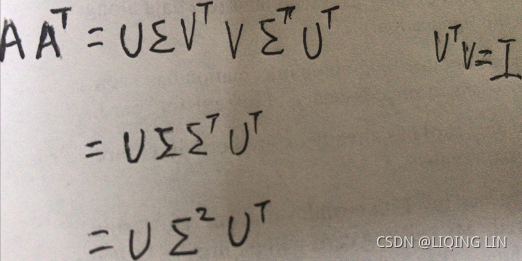 AA^T = UΣV^T VΣ^T U^T    V^T V = I
= UΣΣ^T U^T
= UΣ² U^T
CSDN @LIQING LIN